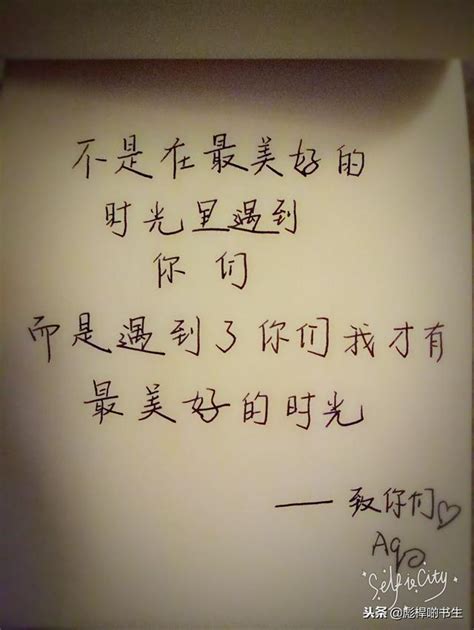 不是在最美好的
时光里遇到
你们
而是遇到了你们我才有
最美好的时光
——致你们♡
SelfieCity
头条@彪悍啲书生